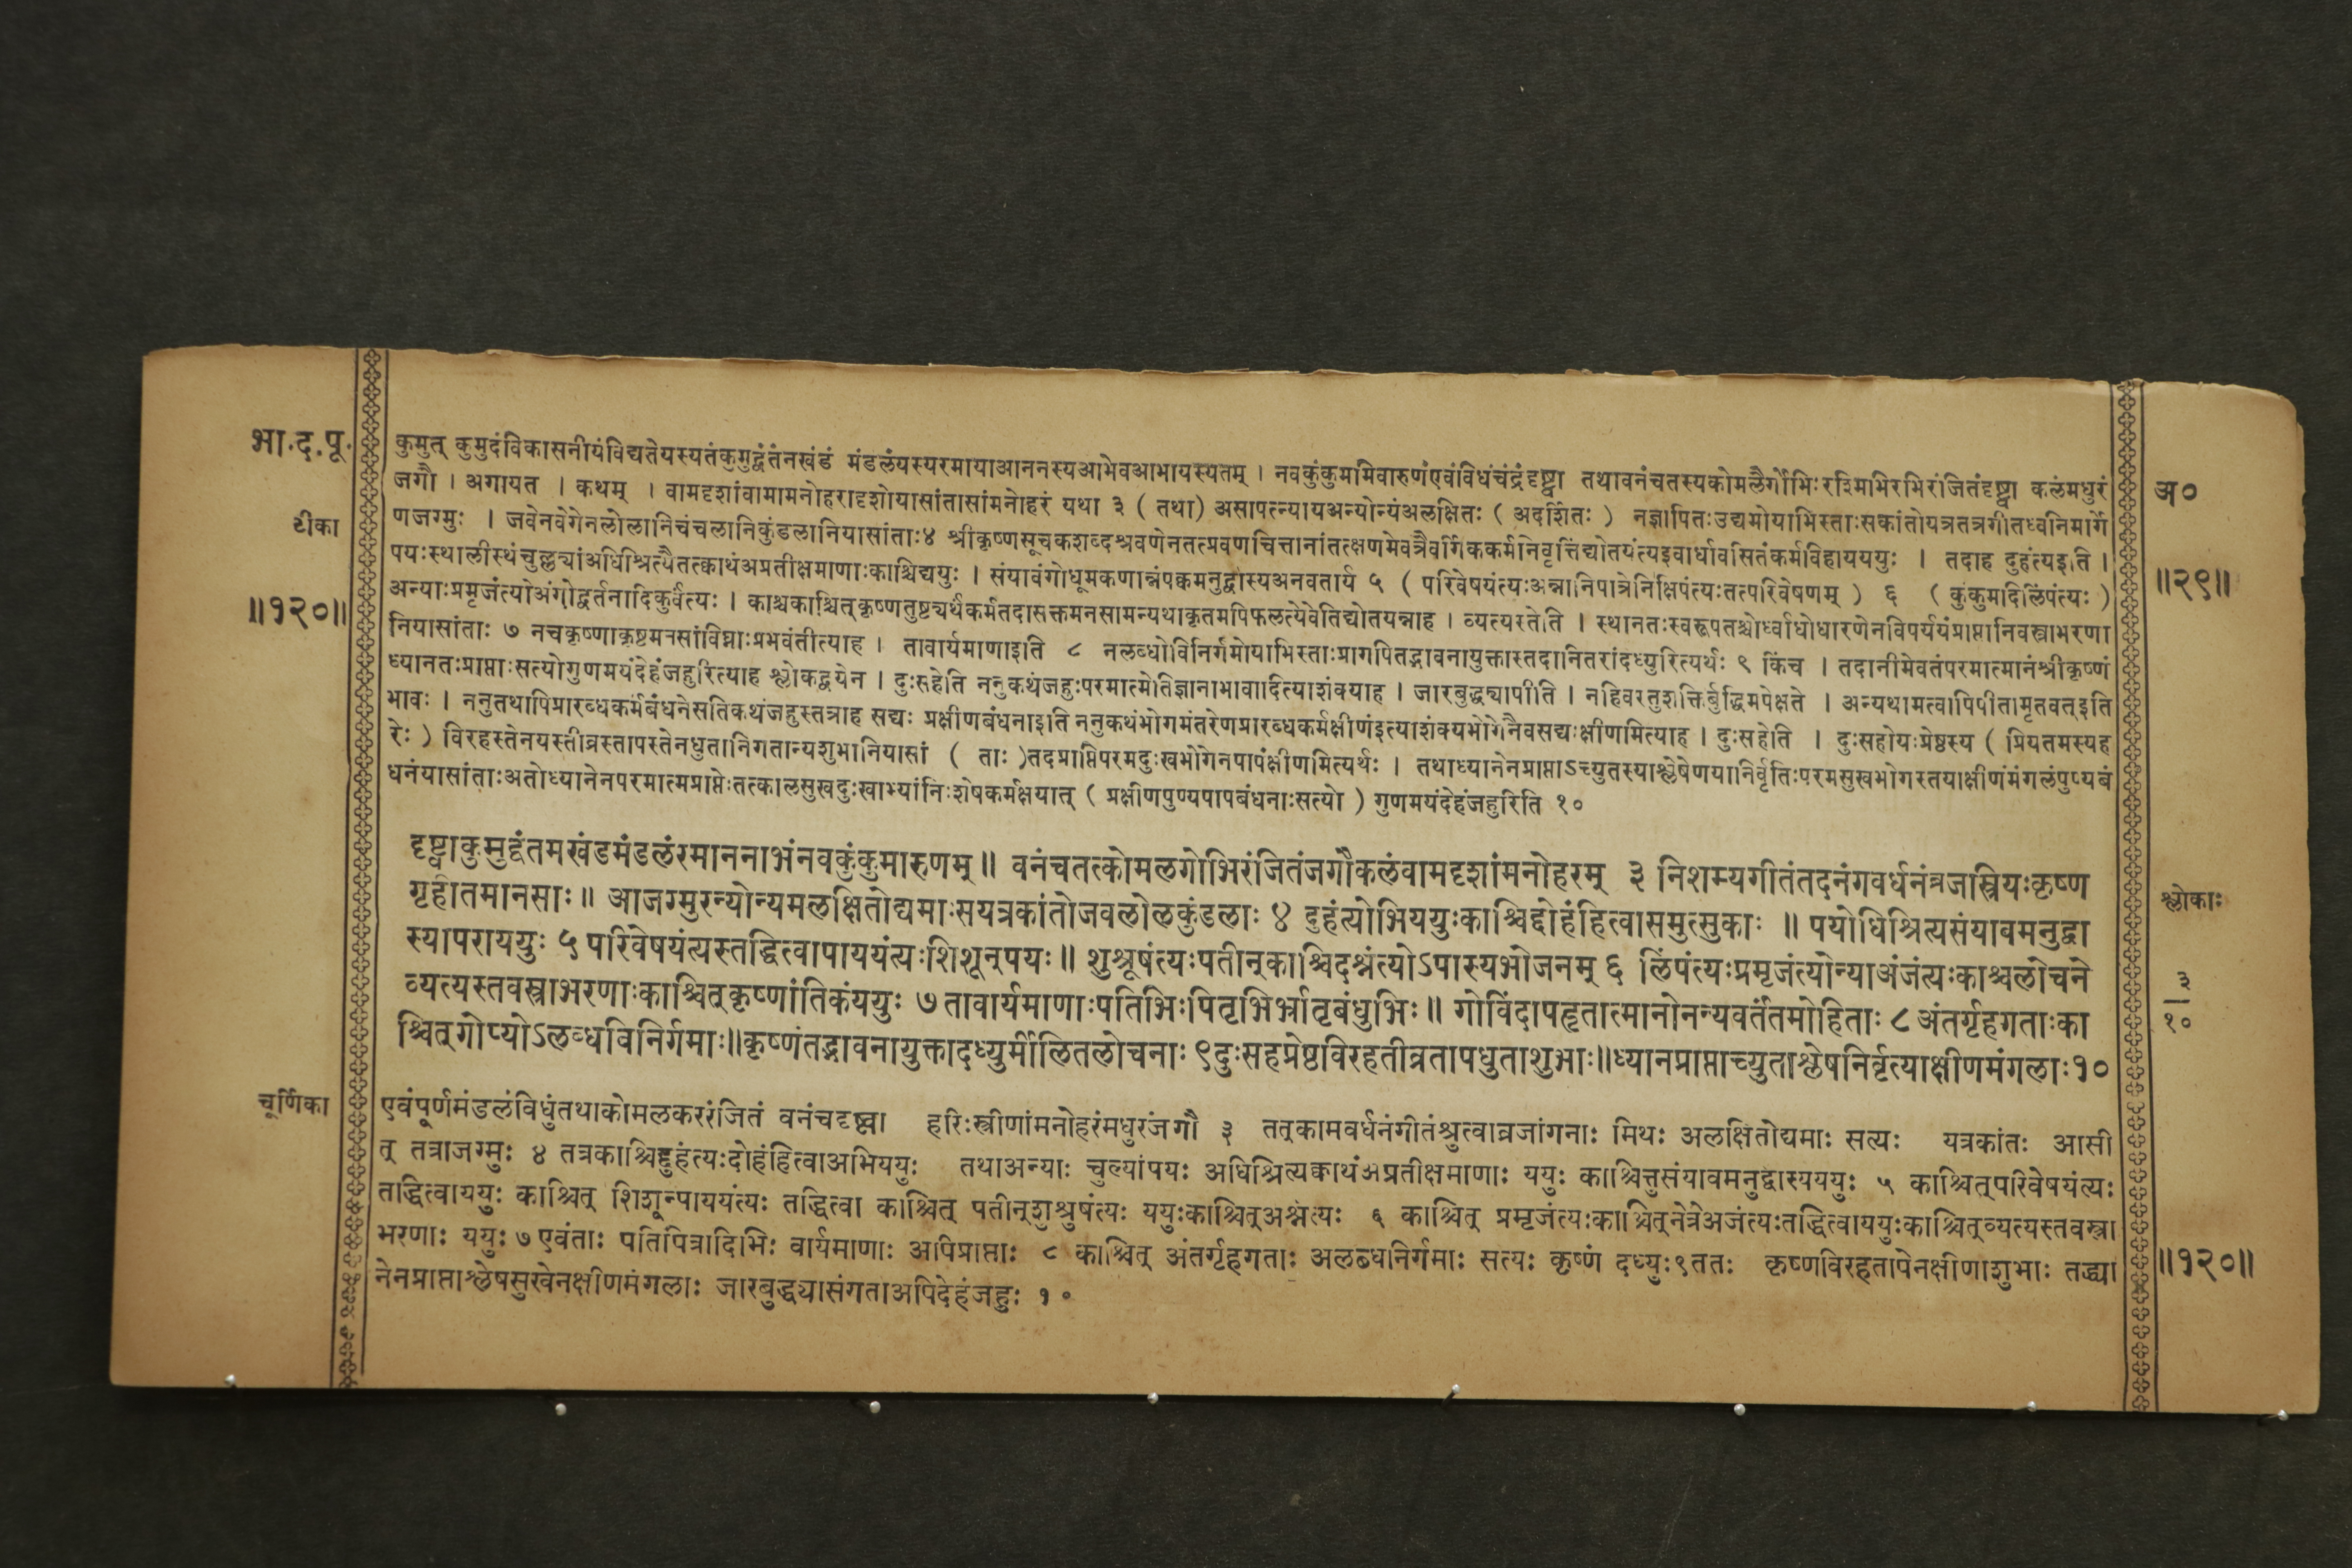 भा.द.पू.
टीका
॥१२०॥
कुमुत् कुमुदंविकासनीयंविद्यतेयस्यतंकुमुद्वंतंनखंडं मंडलंयस्यरमायाआननस्यआभेवआभायस्यतम् । नवकुंकुममिवारुणंएवंविधंचंद्रंदृष्ट्वा तथावनंचतस्यकोमलैर्गोभिःरश्मिभिरभिरंजितंदृष्ट्वा कलंमधुरं
जगौ । अगायत । कथम् । वामदृशांवामामनोहरादृशोयासांतासांमनोहरं यथा ३ ( तथा) असापत्न्यायअन्योन्यंअलक्षितः ( अदर्शितः ) नज्ञापितःउद्यमोयाभिस्ताःसकांतोयत्रतत्रगीतध्वनिमार्गे
णजग्मुः । जवेनवेगेनलोलानिचंचलानिकुंडलानियासांताः४ श्रीकृष्णसूचकशब्दश्रवणेनतत्प्रवणचित्तानांतत्क्षणमेवत्रैवर्गिककर्मनिवृत्तिंद्योतयंत्यइवार्धावसितंकर्मविहायययुः । तदाह दुहंत्यइति ।
पयःस्थालीस्थंचुल्ल्यांअधिश्रित्यैतत्क्वाथंअप्रतीक्षमाणाःकाश्चिद्ययुः । संयावंगोधूमकणान्नंपक्वमनुद्वास्यअनवतार्य ५ ( परिवेषयंत्यःअन्नानिपात्रेनिक्षिपंत्यःतत्परिवेषणम् ) ६ ( कुंकुमादिलिंपंत्यः )
अन्याःप्रमृजंत्योअंगोद्वर्तनादिकुर्वत्यः । काश्चकाश्चित्कृष्णतुष्ट्यर्थंकर्मतदासक्तमनसामन्यथाकृतमपिफलत्येवेतिद्योतयन्नाह । व्यत्यस्तेति । स्थानतःस्वरूपतश्चोर्ध्वाधोधारणेनविपर्ययंप्राप्तानिवस्त्राभरणा
नियासांताः ७ नचकृष्णाकृष्टमनसांविघ्नाःप्रभवंतीत्याह । तावार्यमाणाइति ८ नलब्धोविनिर्गमोयाभिस्ताःप्रागपितद्भावनायुक्तास्तदानितरांदध्युरित्यर्थः ९ किंच । तदानीमेवतंपरमात्मानंश्रीकृष्णं
ध्यानतःप्राप्ताःसत्योगुणमयंदेहंजहुरित्याह श्लोकद्वयेन । दुःसहेति ननुकथंजहुःपरमात्मेतिज्ञानाभावादित्याशंक्याह । जारबुद्ध्यापीति । नहिवस्तुशक्तिर्बुद्धिमपेक्षते । अन्यथामत्वापिपीतामृतवत्इति
भावः । ननुतथापिप्रारब्धकर्मबंधनेसतिकथंजहुस्तत्राह सद्यः प्रक्षीणबंधनाइति ननुकथंभोगमंतरेणप्रारब्धकर्मक्षीणंइत्याशंक्यभोगेनैवसद्यःक्षीणमित्याह । दुःसहेति । दुःसहोयःप्रेष्ठस्य ( प्रियतमस्यह
रेः ) विरहस्तेनयस्तीव्रस्तापस्तेनधुतानिगतान्यशुभानियासां ( ताः )तदप्राप्तिपरमदुःखभोगेनपापंक्षीणमित्यर्थः । तथाध्यानेनप्राप्ताऽच्युतस्याश्लेषेणयानिर्वृतिःपरमसुखभोगस्तयाक्षीणंमंगलंपुण्यबं
धनंयासांताःअतोध्यानेनपरमात्मप्राप्तेःतत्कालसुखदुःखाभ्यांनिःशेषकर्मक्षयात् ( प्रक्षीणपुण्यपापबंधनाःसत्यो ) गुणमयंदेहंजहुरिति १०
दृष्ट्वाकुमुद्वंतमखंडमंडलंरमाननाभंनवकुंकुमारुणम् ॥ वनंचतत्कोमलगोभिरंजितंजगौकलंवामदृशांमनोहरम् ३ निशम्यगीतंतदनंगवर्धनंव्रजास्त्रियःकृष्ण
गृहीतमानसाः ॥ आजग्मुरन्योन्यमलक्षितोद्यमाःसयत्रकांतोजवलोलकुंडलाः ४ दुहंत्योभिययुःकाश्चिद्दोहंहित्वासमुत्सुकाः ॥ पयोधिश्रित्यसंयावमनुद्वा
स्यापराययुः ५ परिवेषयंत्यस्तद्धित्वापाययंत्यःशिशून्पयः ॥ शुश्रूषंत्यःपतीन्काश्चिदश्नंत्योऽपास्यभोजनम् ६ लिंपंत्यःप्रमृजंत्योन्याअंजंत्यःकाश्चलोचने
व्यत्यस्तवस्त्राभरणाःकाश्चित्कृष्णांतिकंययुः ७ तावार्यमाणाःपतिभिःपितृभिर्भ्रातृबंधुभिः ॥ गोविंदापहृतात्मानोनन्यवर्तंतमोहिताः ८ अंतर्गृहगताःका
श्चित्गोप्योऽलब्धविनिर्गमाः॥कृष्णंतद्भावनायुक्तादध्युर्मीलितलोचनाः ९दुःसहप्रेष्ठविरहतीव्रतापधुताशुभाः॥ध्यानप्राप्ताच्युताश्लेषनिर्वृत्याक्षीणमंगलाः१०
चूर्णिका
एवंपूर्णमंडलंविधुंतथाकोमलकररंजितं वनंचदृष्ट्वा हरिःस्त्रीणांमनोहरंमधुरंजगौ ३ तत्कामवर्धनंगीतंश्रुत्वाव्रजांगनाः मिथः अलक्षितोद्यमाः सत्यः यत्रकांतः आसी
त् तत्राजग्मुः ४ तत्रकाश्चिद्दुहंत्यःदोहंहित्वाअभिययुः तथाअन्याः चुल्यांपयः अधिश्रित्यक्वाथंअप्रतीक्षमाणाः ययुः काश्चित्तुसंयावमनुद्वास्यययुः ५ काश्चित्परिवेषयंत्यः
तद्धित्वाययुः काश्चित् शिशून्पाययंत्यः तद्धित्वा काश्चित् पतीन्शुश्रुषंत्यः ययुःकाश्चित्अश्नंत्यः ६ काश्चित् प्रमृजंत्यःकाश्चित्नेत्रेअजंत्यःतद्धित्वाययुःकाश्चित्व्यत्यस्तवस्त्रा
भरणाः ययुः ७ एवंताः पतिपित्रादिभिः वार्यमाणाः अपिप्राप्ताः ८ काश्चित् अंतर्गृहगताः अलब्धनिर्गमाः सत्यः कृष्णं दध्युः९ततः कृष्णविरहतापेनक्षीणाशुभाः तद्ध्या
नेनप्राप्ताश्लेषसुखेनक्षीणमंगलाः जारबुद्ध्यासंगताअपिदेहंजहुः १०
अ०
॥२९॥
श्लोकाः
३
१०
॥१२०॥